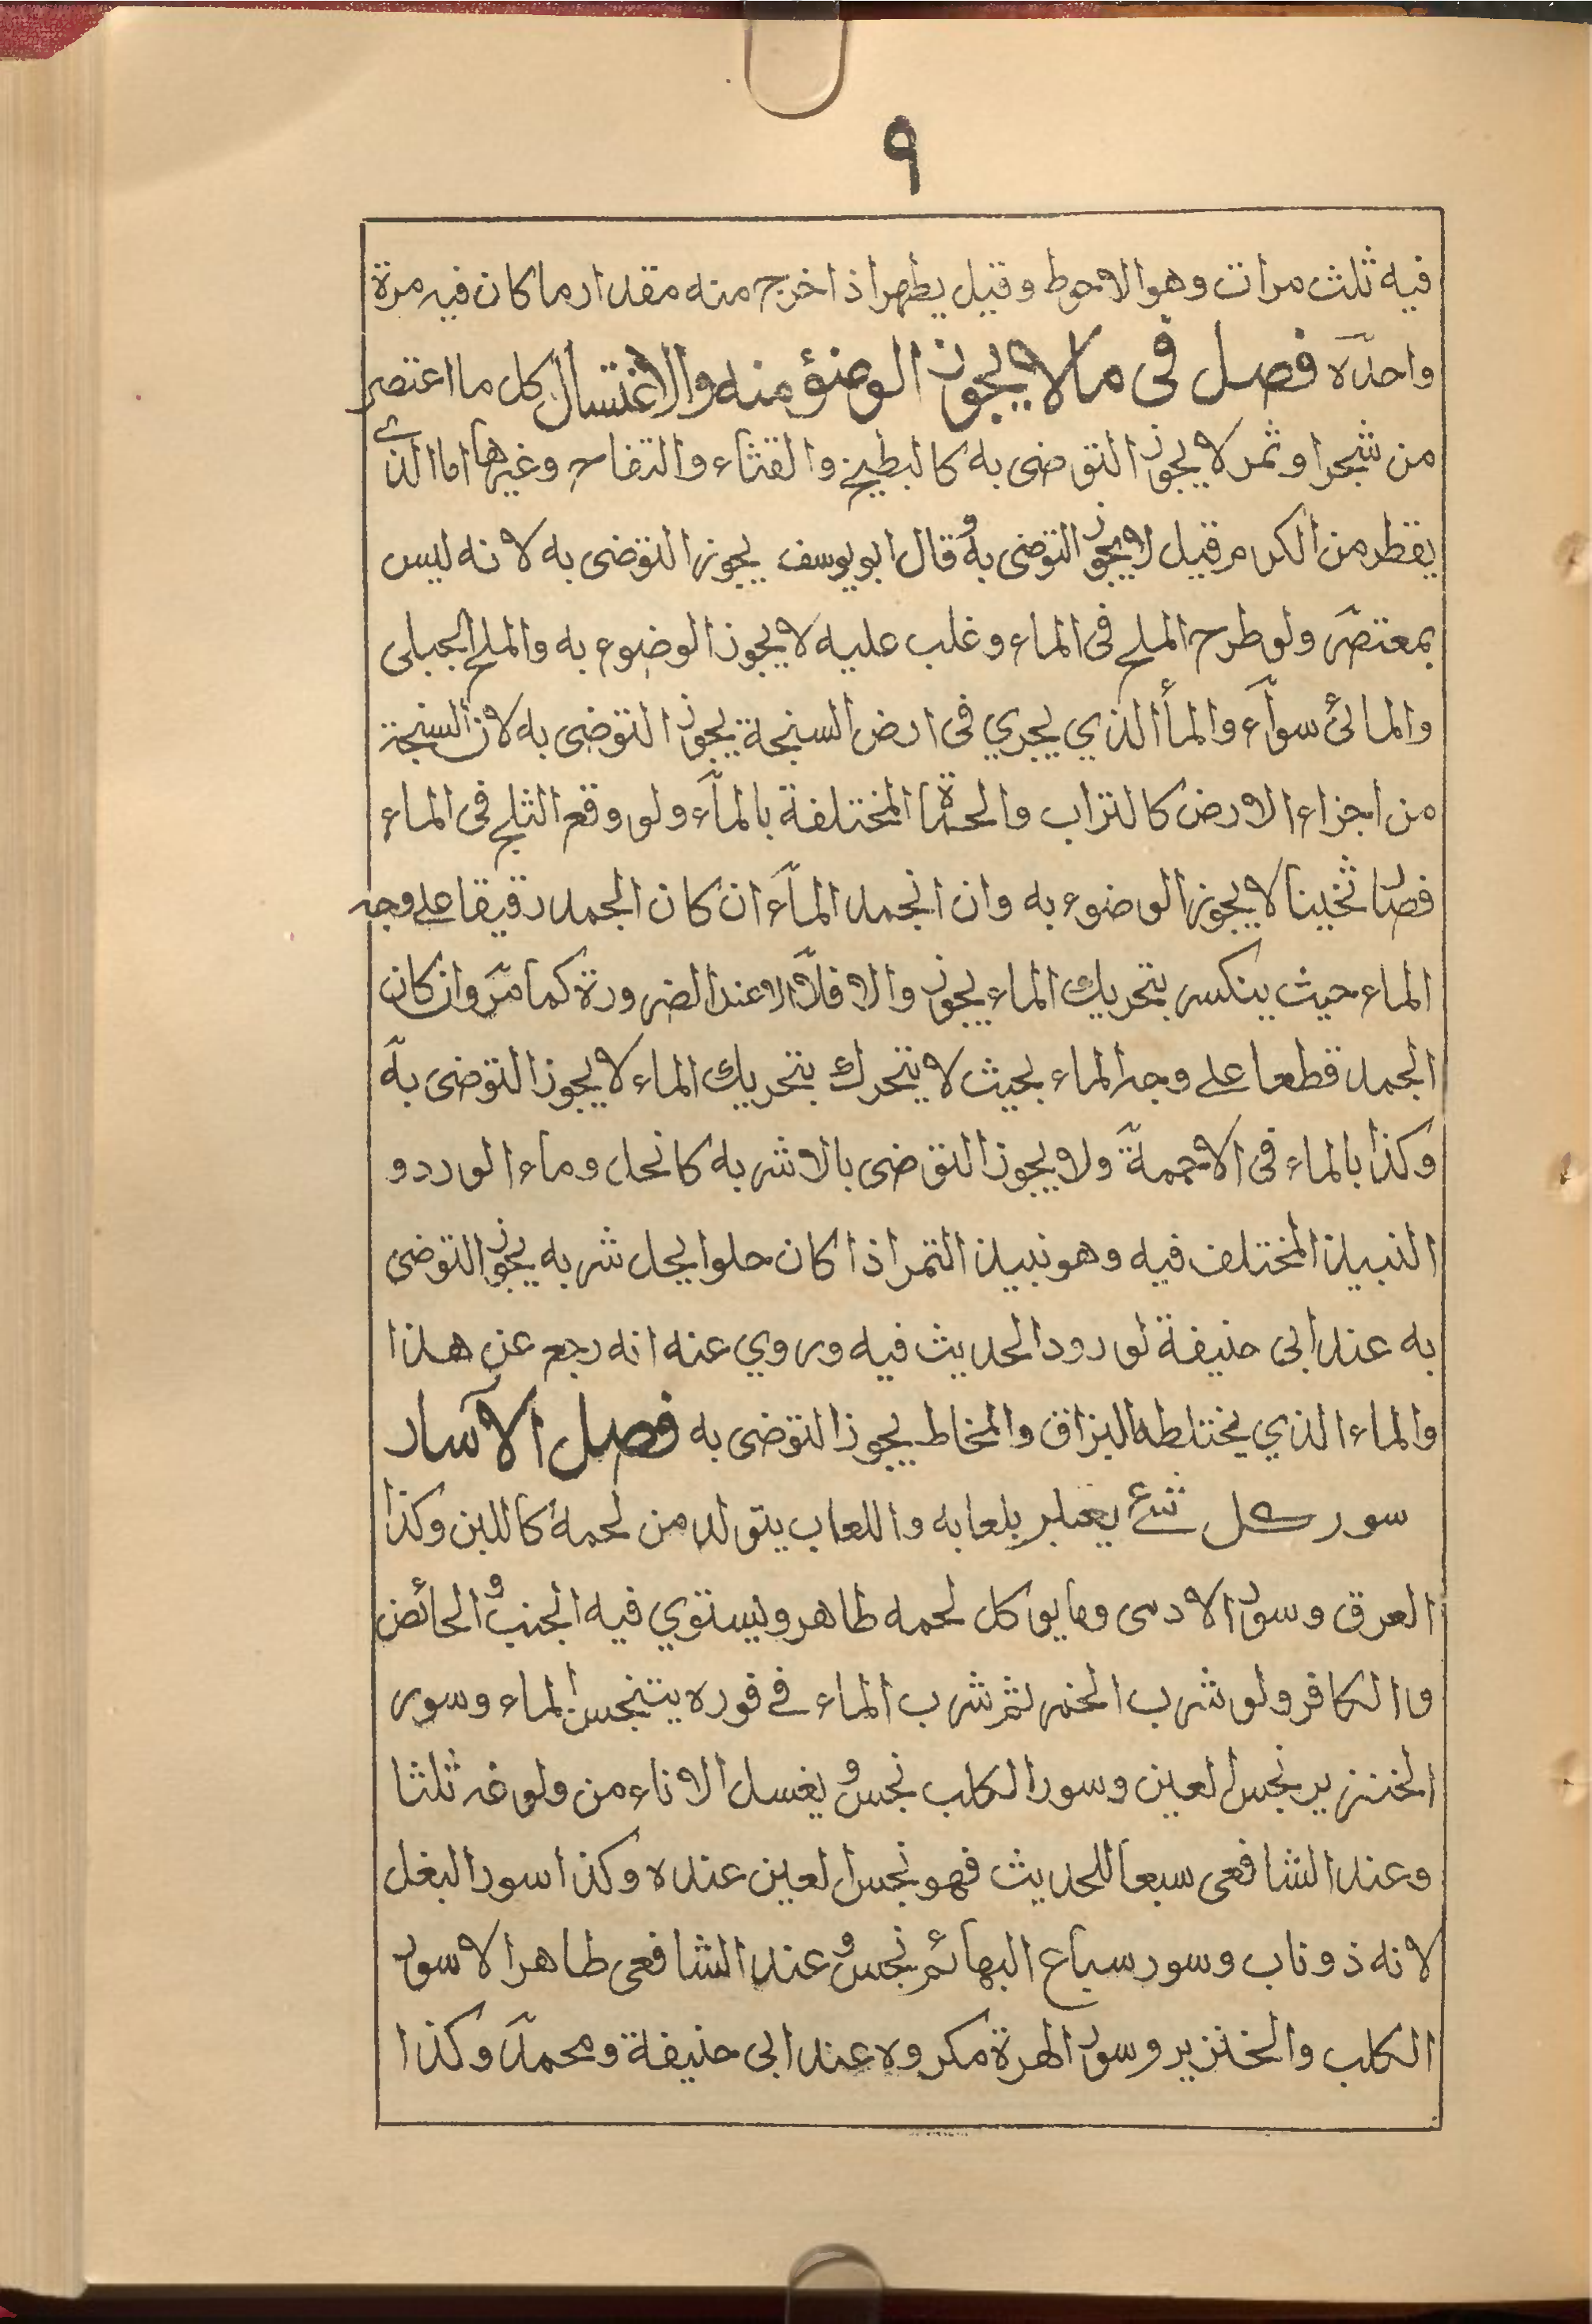 ٩
فيه ثلث مرات وهو الاحوط وقيل يطهر اذا خرج منه مقدار ما كان فيه مرة
واحدة فصل فى مالا يجوز الوضؤ منه والاغتسال كل ما اعتصر
من شجر او ثمر لا يجوز التوضى به كالبطيخ والقثاء والتفاح وغيرها اما الذي
يقطر من الكرم قيل لا يجوز التوضى به وقال ابو يوسف يجوز التوضى به لانه ليس
بمعتصر ولو طرح الملح فى الماء وغلب عليه لا يجوز الوضوء به والملح الجبلى
والمائى سوآء والمأ الذي يجري فى ارض السنجة يجوز التوضى به لان السنجة
من اجزاء الارض كالتراب والحمأة المختلفة بالمآء ولو وقع الثلج فى الماء
فصار ثخينا لا يجوز الوضوء به وان انجمد المآء ان كان الجمد رقيقا على وجه
الماء حيث ينكسر بتحريك الماء يجوز والا فلا الا عند الضرورة كما مر وان كان
الجمد قطعا على وجه الماء بحيث لا يتحرك بتحريك الماء لا يجوز التوضى به
وكذا بالماء فى الاجمة ولا يجوز التوضى بالاشربه كانحل وماء الورد و
النبيذ المختلف فيه وهو نبيذ التمر اذا كان حلوا يحل شربه يجوز التوضى
به عند ابى حنيفة لورود الحديث فيه وروي عنه انه رجع عن هذا
والماء الذي يختلطه البزاق والمخاط يجوز التوضى به فصل الآسار
سور كل شئ يعتبر بلعابه واللعاب يتولد من لحمه كاللبن وكذا
العرق وسور الادمى وما يوكل لحمه طاهر ويستوي فيه الجنب والحائض
واالكافر ولو شرب الخمر ثم شرب الماء فى فوره يتنجس الماء وسور
الخنزير نجس العين وسور الكلب نجس ويغسل الاناء من ولوغه ثلثا
وعند الشافعى سبعا للحديث فهو نجس العين عنده وكذا سور البغل
لانه ذو ناب وسور سباع البهائم نجس وعند الشافعى طاهر الا سور
الكلب والخنزير وسور الهرة مكروه عند ابى حنيفة ومحمد وكذا